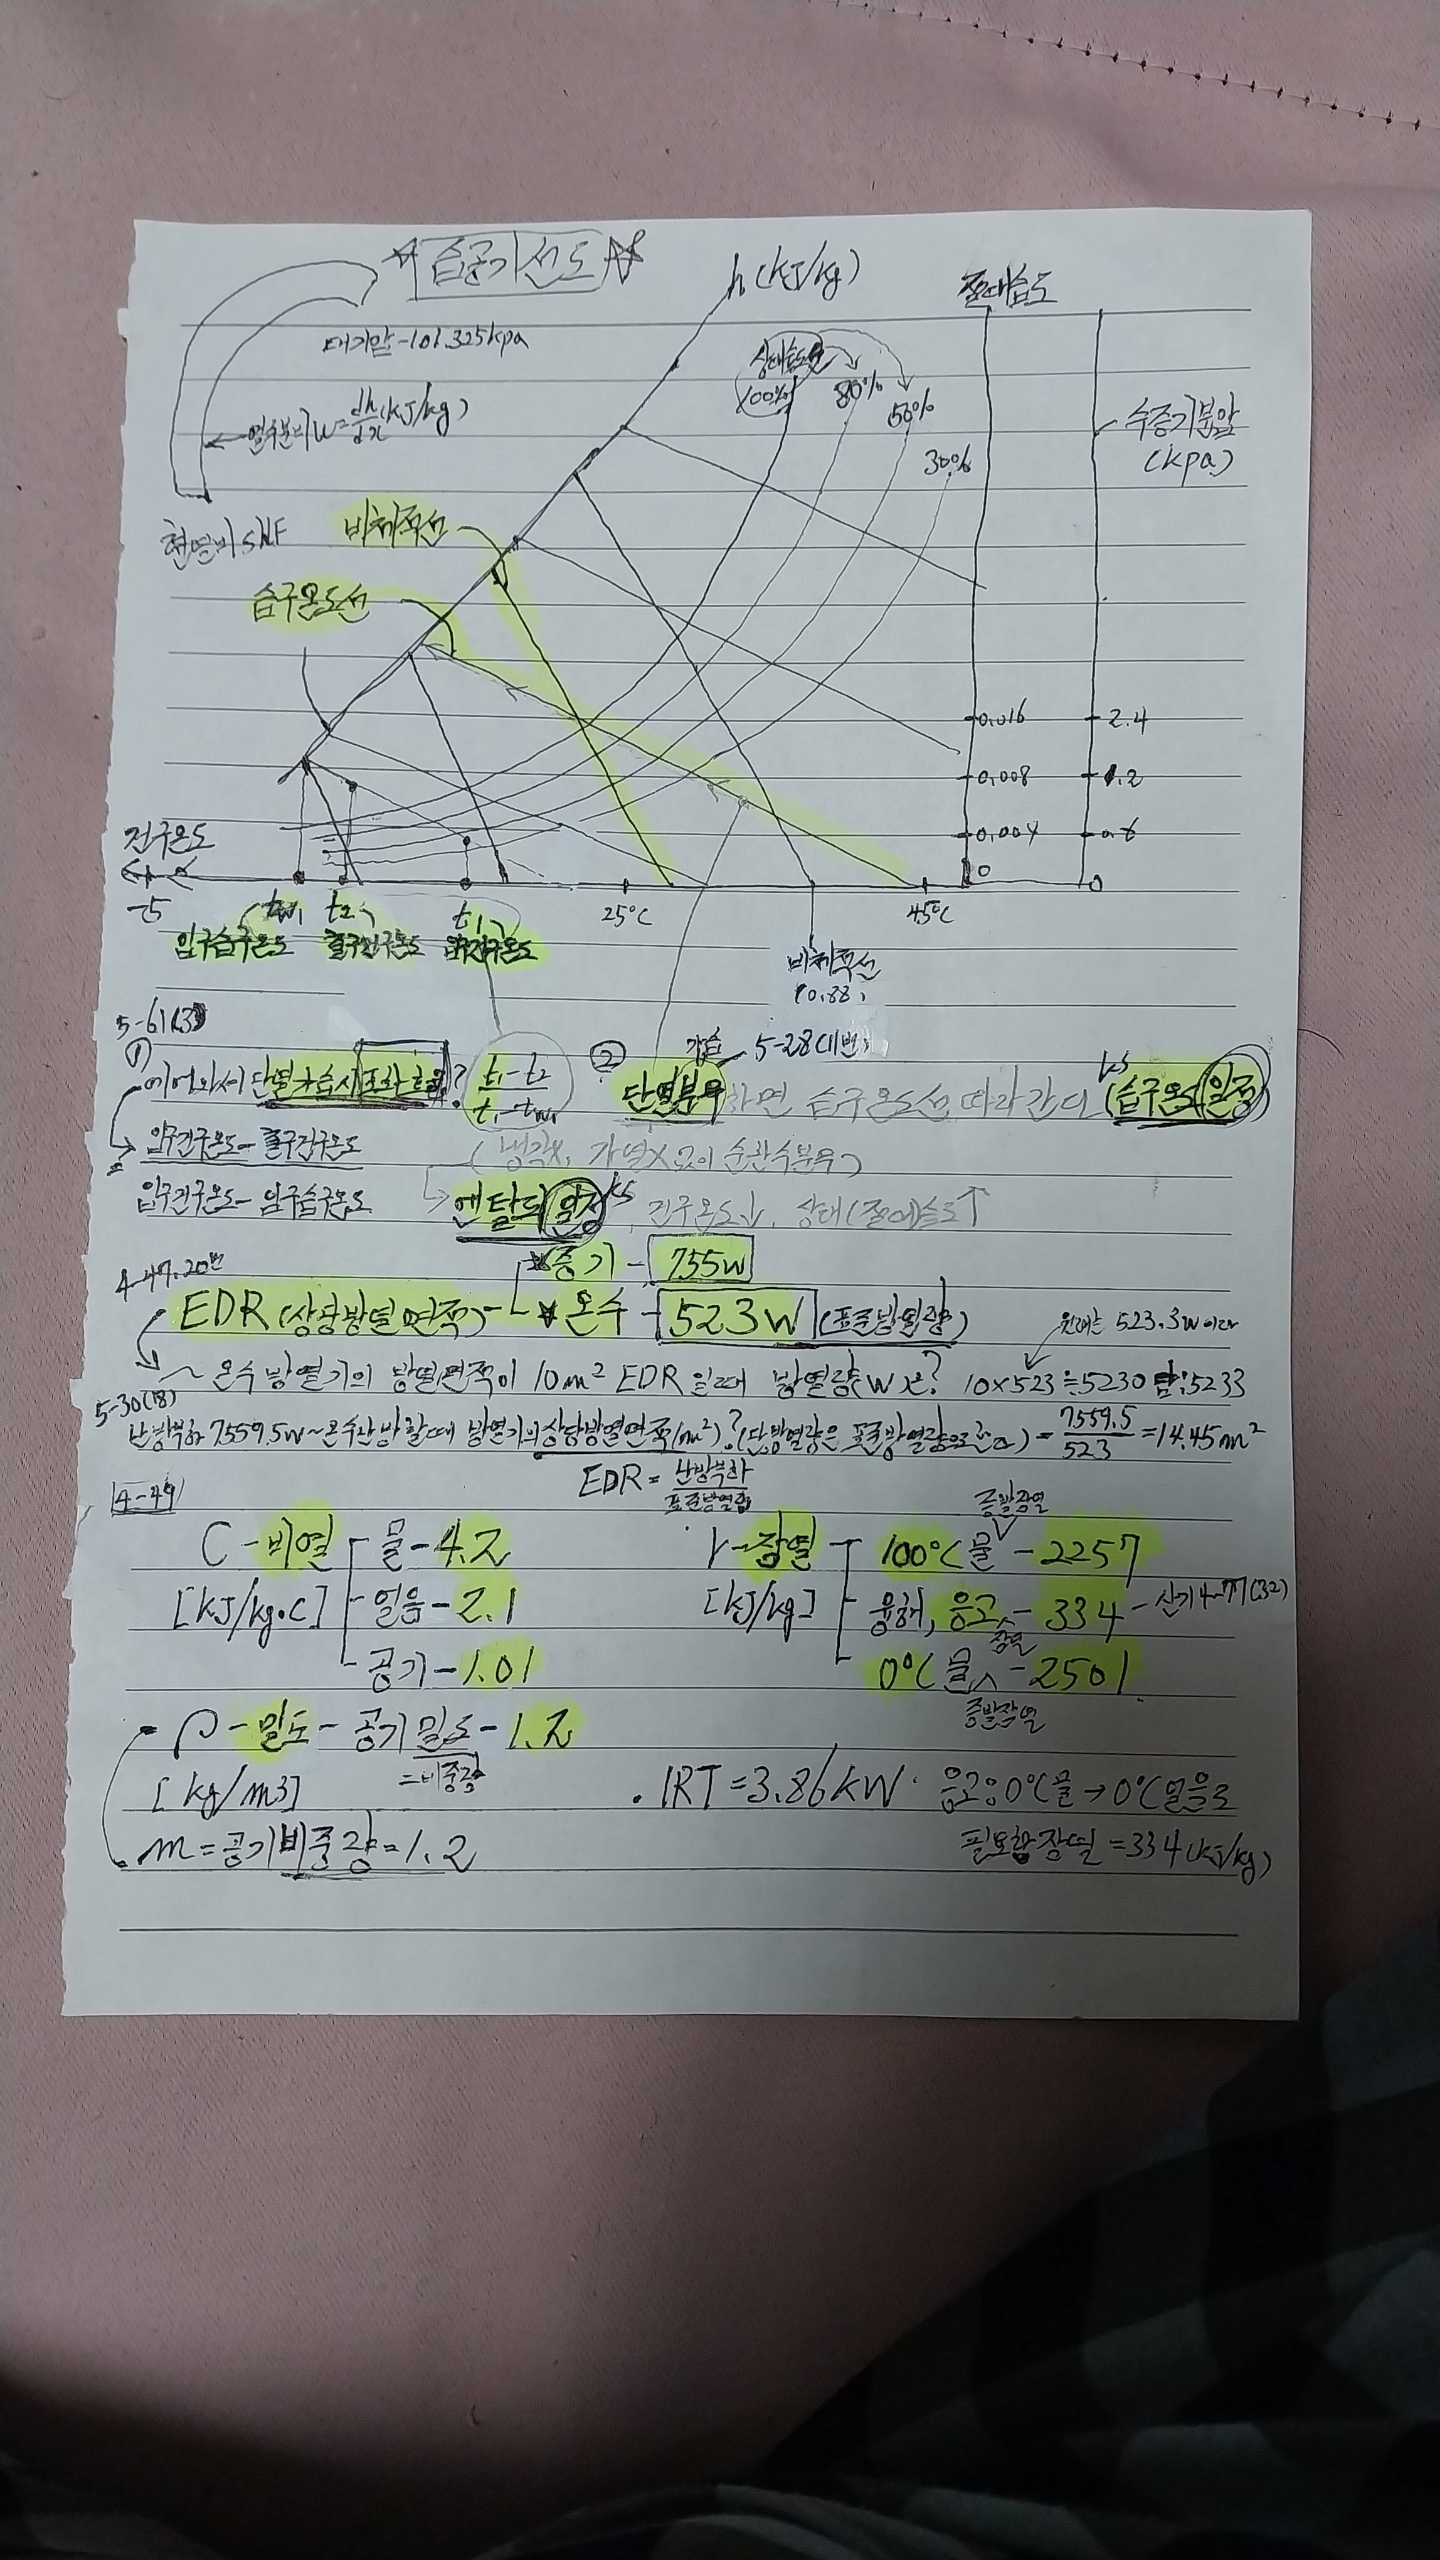 ☆ 습공기선도 ☆
h (kJ/kg)
절대습도
대기압-101.325kpa
상대습도
100%
80%
50%
30%
열수분비 u=dh/dx(kJ/kg)
수증기분압
(kpa)
현열비 SHF
비체적선
습구온도선
0.016
2.4
0.008
1.2
0.004
0.6
0
0
건구온도
-5
tw1
t2
t1
25°C
45°C
입구습구온도
출구건구온도
입구건구온도
비체적선
(0.88)
5-61(3)
① 에어와셔 단열가습시 포화효율? t1-t2 / t1-tw1
입구건구온도-출구건구온도
입구건구온도-입구습구온도
② 가습 5-28(11번)
단열분무하면 습구온도선 따라간다 (습구온도 일정)
(냉각x, 가열x 없이 순환수분무)
엔탈피 일정, 건구온도↓, 상대(절대습도↑
4-47.20번
EDR (상당방열면적)
증기 - 755w
온수 - 523W (표준방열량)
원래는 523.3w이다
~ 온수 방열기의 방열면적이 10m² EDR 일때 방열량(W)은? 10×523≒5230 답:5233
5-30(18)
난방부하 7559.5W~온수난방할때 방열기의 상당방열면적(m²)?(단,방열량은 표준방열량으로 한다) = 7559.5/523 =14.45m²
EDR = 난방부하/표준방열량
4-49
C - 비열
[kJ/kg·C]
물 - 4.2
얼음 - 2.1
공기 - 1.01
r - 잠열
[kJ/kg]
증발잠열
100°C 물 - 2257
융해, 응고 - 334 - 산기4-77(32)
잠열
0°C 물 - 2501
증발잠열
ρ - 밀도 - 공기 밀도 - 1.2
=비중량
[kg/m3]
m = 공기비중량 = 1.2
. 1RT = 3.86kW. 응고:0°C물→0°C얼음로
필요한 잠열 = 334(kJ/kg)